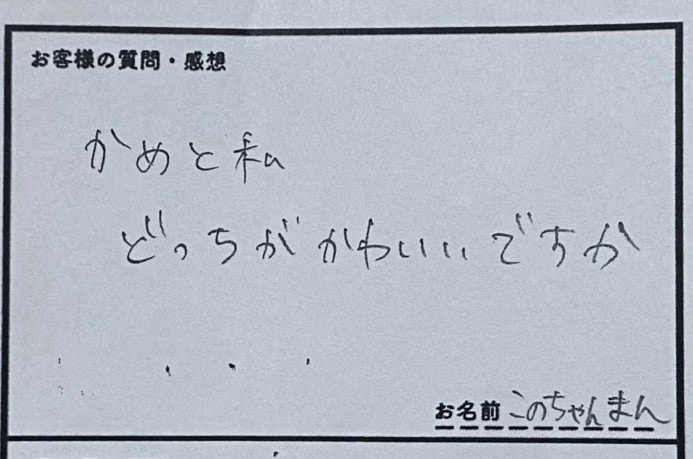 お客様の質問・感想
かめと私
どっちがかわいいですか
お名前 このちゃんまん